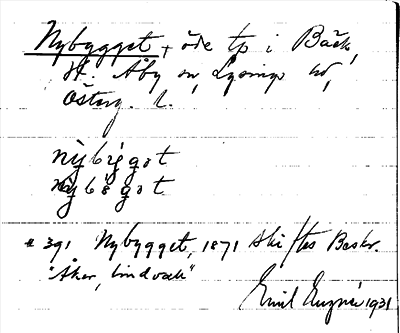 Nybygget, öde tp i Bäck,
St. Åby sn, Lysings hd,
Österg. l.
nỳbỳgot
nỳbögot
* 391 Nybygget, 1871 Skiftes Beskr.
"Åker, lindvall"
Emil 1931